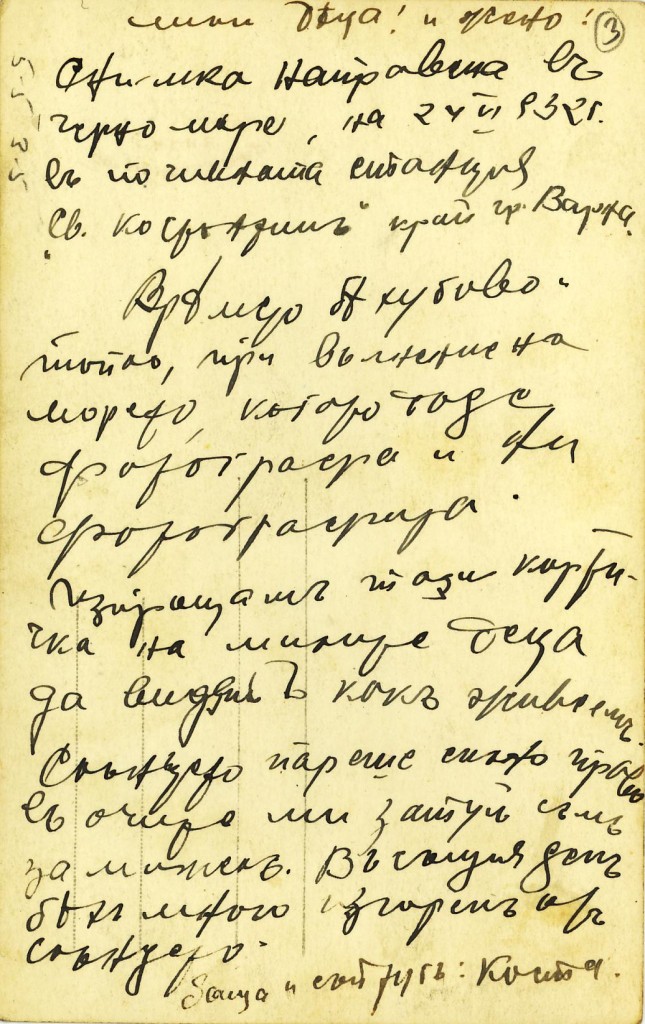 мили Дѣца! и жено! 3
Снимка направена въ
Черно море, на 24 VI 932 г.
въ почивната станция
"Св. Костънтинъ" край гр. Варна.
Времето бѣ хубаво -
топло, при вълнение на
морето, когато тоя
фотографа и ни
фотографира.
Изпращамъ тази карти-
чка на милите деца
да видятъ какъ живеемъ.
Слънцето пареше силно право
въ очите ми затуй съмъ
замижен. Въ същия день
бѣхъ много изгоренъ отъ
слънцето.
баща и съпругъ: Коста.